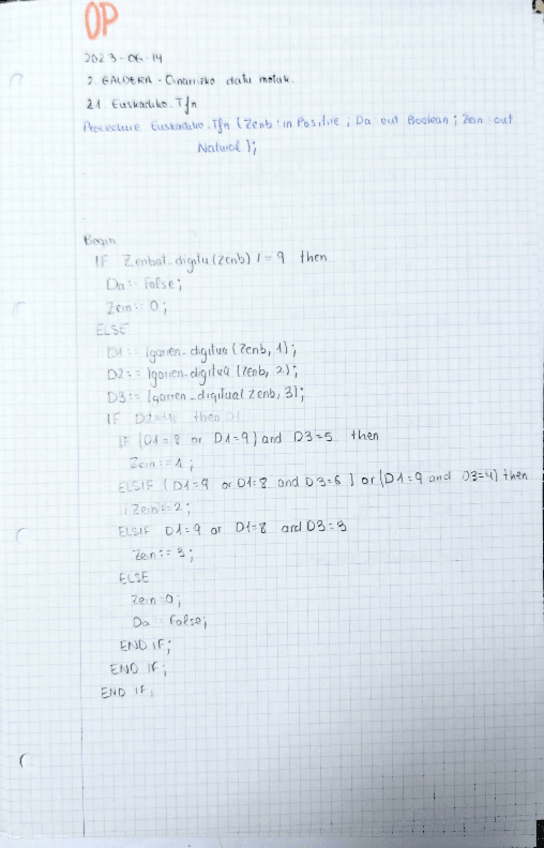 OP
2023-06-14
2. GALDERA - Oinarrizko datu motak.
2.1. Euskadiko_Tfn
Procedure Euskadiko_Tfn (Zenb : in Positive ; Da out Boolean ; Zein : out
Natural );
Begin
IF Zenbat_digitu (Zenb) /= 9 then
Da := False;
Zein := 0;
ELSE
D1 := Igarren_digitua (Zenb, 1);
D2 := Igarren_digitua (Zenb, 2);
D3 := Igarren_digitua( Zenb, 3);
IF then
IF (D1=8 or D1=9) and D3=5 then
Zein :=1;
ELSIF (D1=9 or D1=8 and D3=6 ) or (D1=9 and D3=4) then
Zein :=2;
ELSIF D1=9 or D1=8 and D3=3
Zein := 3;
ELSE
Zein :0;
Da : False;
END IF;
END IF;
END IF;